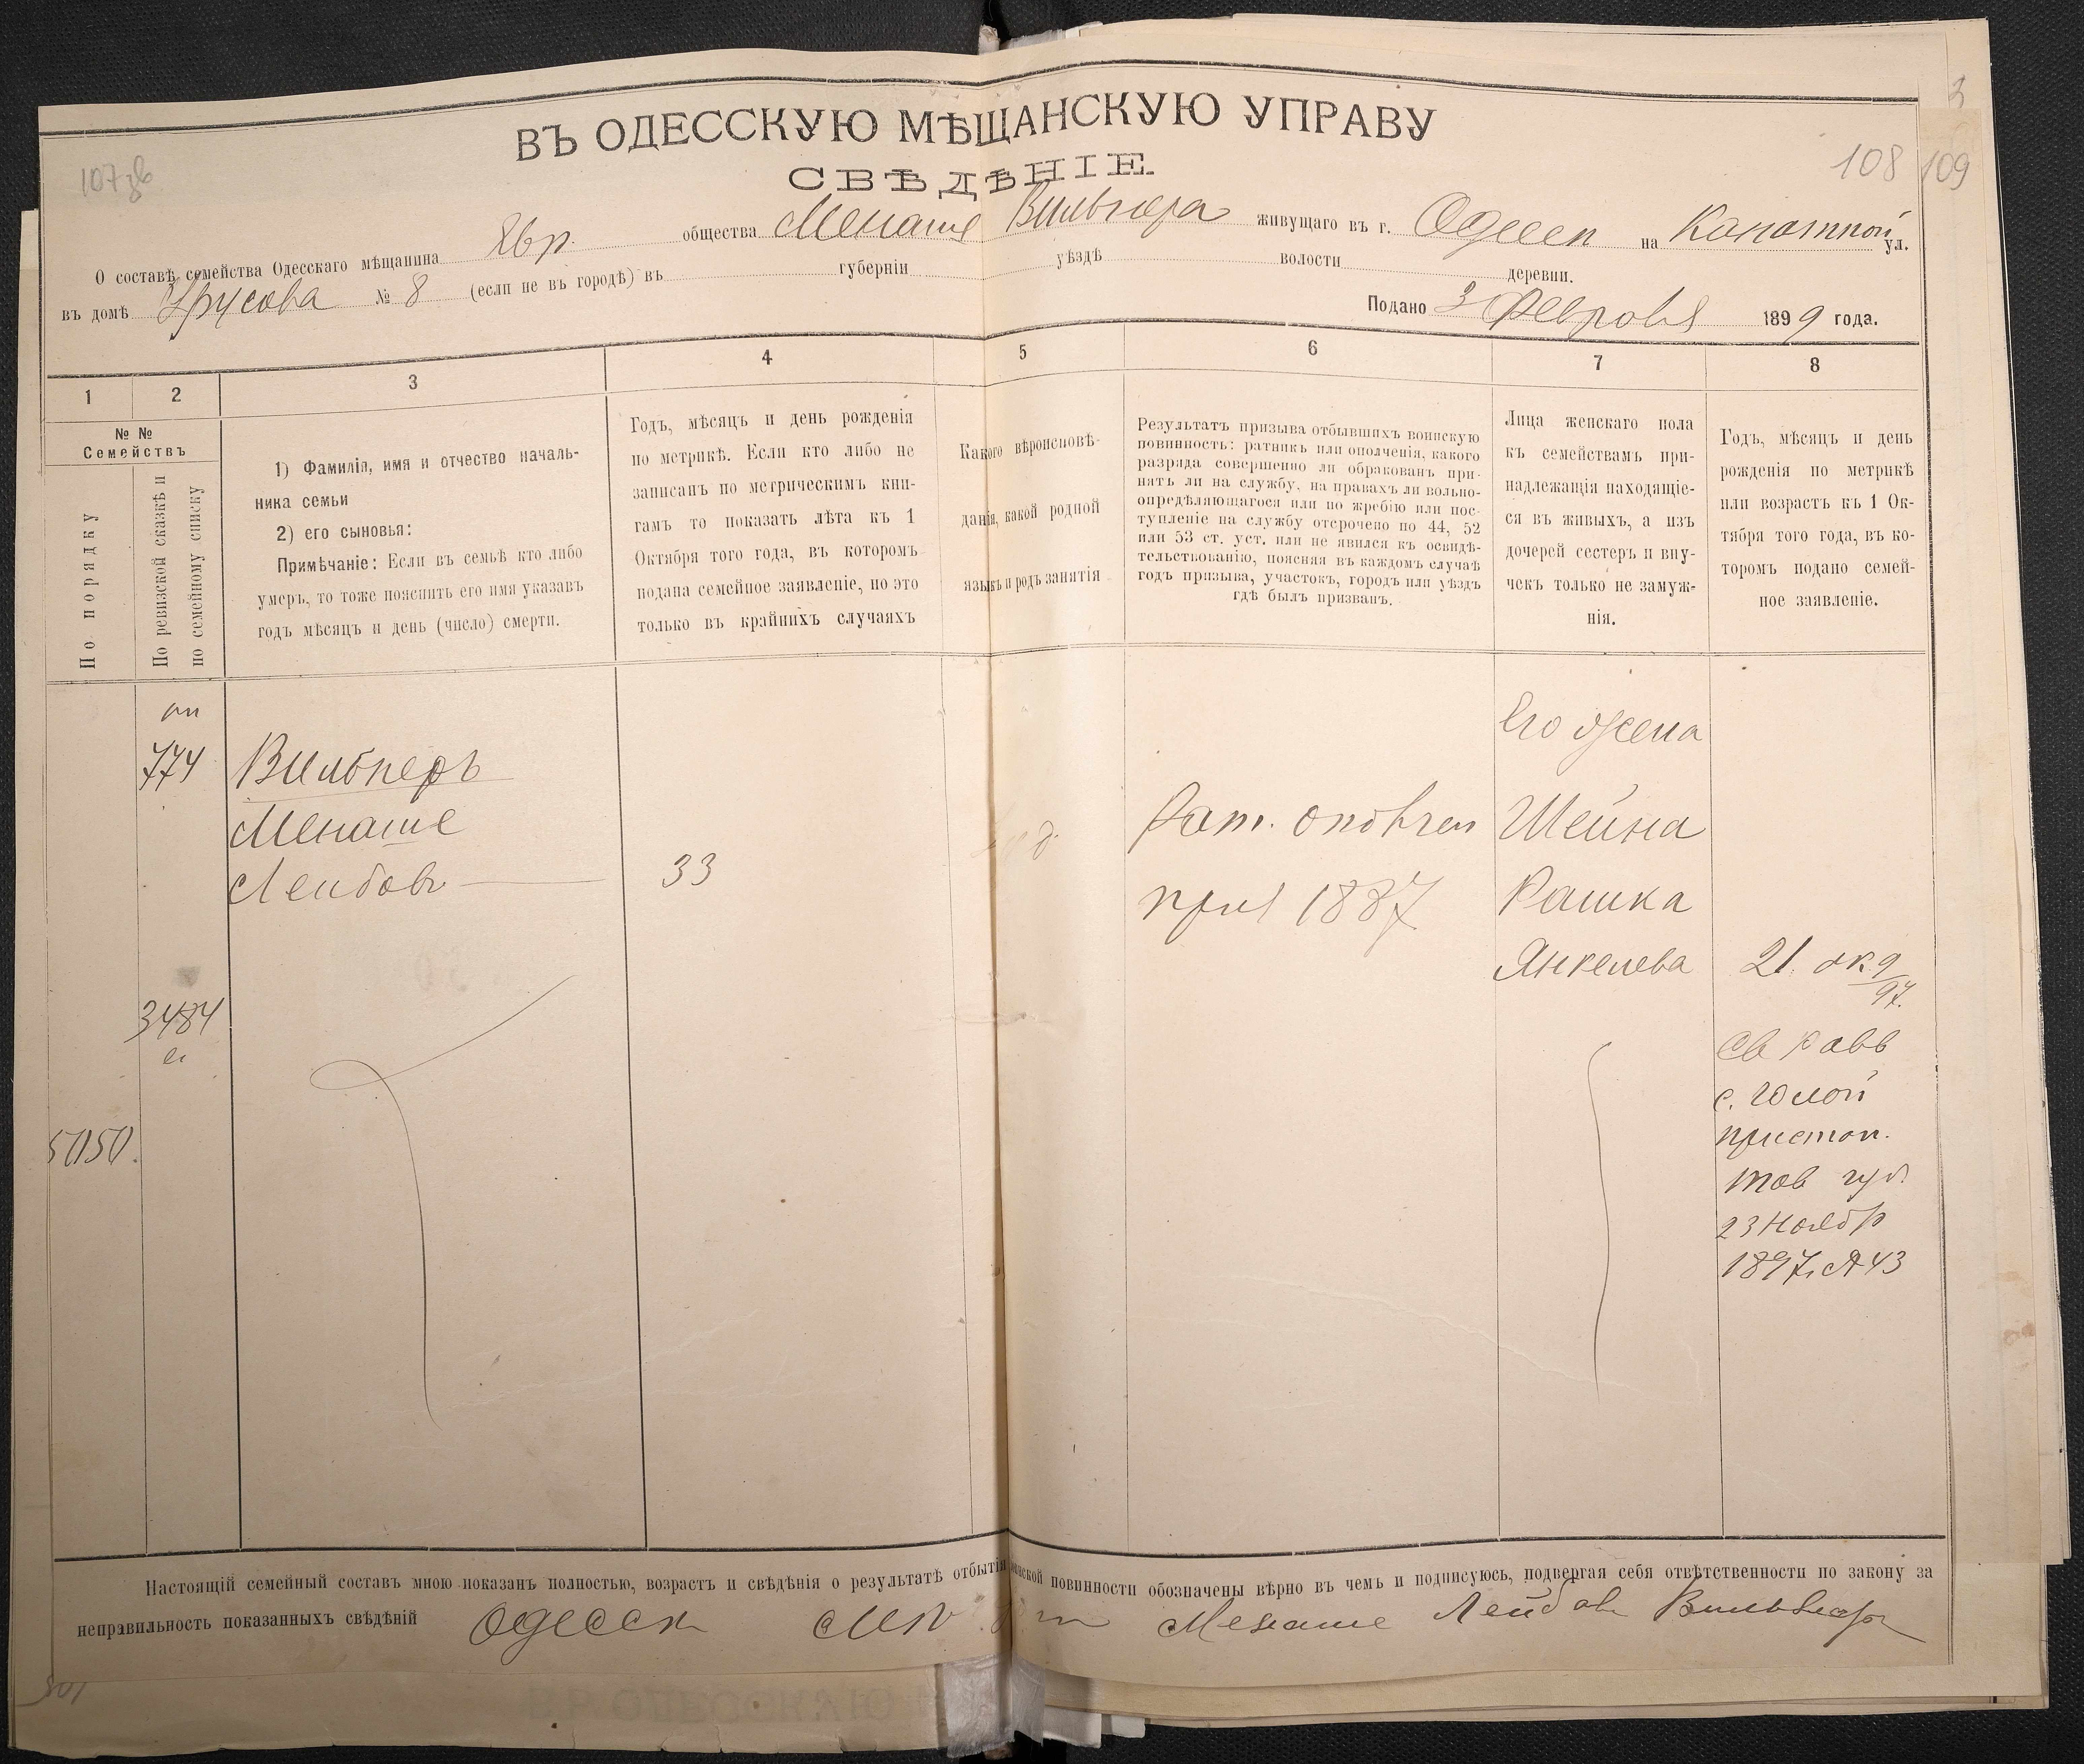 ВЪ ОДЕССКУЮ МѢЩАНСКУЮ УПРАВУ
СВѢДѢНІЕ
3
107зв
108 109
О составѣ семейства Одесскаго мѣщанина Евр. общества Менаше Вильнера живущаго въ г. Одессѣ на Канатной ул.
въ домѣ Урусова № 8 (если не въ городѣ) въ губерніи уѣздѣ волости деревни.
Подано 3 Февраля 1899 года.
1 2 3 4 5 6 7 8
№ №
Семействъ
По порядку
По ревизской сказкѣ и
по семейному списку
1) Фамилія, имя и отчество началь-
ника семьи
2) его сыновья:
Примѣчаніе: Если въ семьѣ кто либо
умеръ, то тоже пояснить его имя указавъ
годъ мѣсяцъ и день (число) смерти.
Годъ, мѣсяцъ и день рожденія
по метрикѣ. Если кто либо не
записанъ по метрическимъ кни-
гамъ то показать лѣта къ 1
Октября того года, въ которомъ
подана семейное заявленіе, но это
только въ крайнихъ случаяхъ
Какого вѣроисповѣ-
данія, какой родной
языкъ и родъ занятія
Результатъ призыва отбывшихъ воинскую
повинность: ратникъ или ополченія, какого
разряда совершенно ли обракованъ при-
нятъ ли на службу, на правахъ ли вольно-
опредѣляющагося или по жребію или пос-
тупленіе на службу отсрочено по 44, 52
или 53 ст. уст. или не явился къ освидѣ-
тельствованію, поясняя въ каждомъ случаѣ
годъ призыва, участокъ, городъ или уѣздъ
гдѣ былъ призванъ.
Лица женскаго пола
къ семействамъ при-
надлежащія находящіе-
ся въ живыхъ, а изъ
дочерей сестеръ и вну-
чекъ только не замуж-
нія.
Годъ, мѣсяцъ и день
рожденія по метрикѣ
или возрастъ къ 1 Ок-
тября того года, въ ко-
торомъ подано семей-
ное заявленіе.
774
Вильнеръ
Менаше
Лейбовъ
33
3484
5050.
Рат. ополчен
приз 1887
Его жена
Шейна
Рашка
Янкелева
21.
97.
Св равв
с.
пристан.
Тав губ.
23 Ноябр
1897. № 43
Настоящій семейный составъ мною показанъ полностью, возрастъ и свѣдѣнія о результатѣ отбытія воинской повинности обозначены вѣрно въ чемъ и подписуюсь, подвергая себя отвѣтственности по закону за
неправильность показанныхъ свѣдѣній Одесск Менаше Лейбовъ Вильнеръ